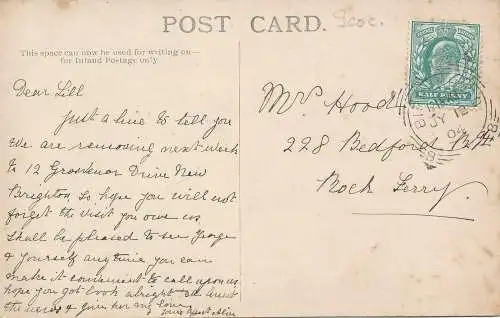 POST CARD.
This space can now be used for writing on—
for Inland Postage only
Dear Lill
Just a line to tell you
We are removing next week
to 12 Grosvenor Drive New
Brighton So hope you will not
forget the visit you owe us
Shall be pleased to see George
& yourself any time you can
make it convenient to call upon us
hope you got back alright
the news & Give her my love
Mrs Hood
228 Bedford Rd
Rock Ferry.
HALF PENNY
JY 12
04